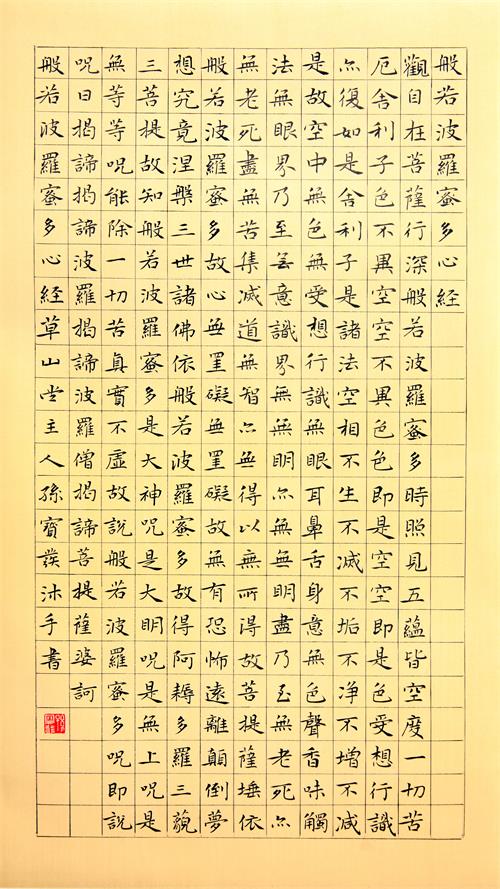 般若波羅蜜多心経
觀自在菩薩行深般若波羅蜜多時照見五蘊皆空度一切苦
厄舍利子色不異空空不異色色即是空空即是色受想行識
亦復如是舍利子是諸法空相不生不滅不垢不净不增不減
是故空中無色無受想行識無眼耳鼻舌身意無色聲香味觸
法無眼界乃至無意識界無無明亦無無明盡乃至無老死亦
無老死盡無苦集滅道無智亦無得以無所得故菩提薩埵依
般若波羅蜜多故心無罣礙無罣礙故無有恐怖遠離顛倒夢
想究竟涅槃三世諸佛依般若波羅蜜多故得阿耨多羅三藐
三菩提故知般若波羅蜜多是大神咒是大明咒是無上咒是
無等等咒能除一切苦真實不虛故說般若波羅蜜多咒即說
咒曰揭諦揭諦波羅揭諦波羅僧揭諦菩提薩婆訶
般若波羅蜜多心経草山堂主人孫寶沐手書